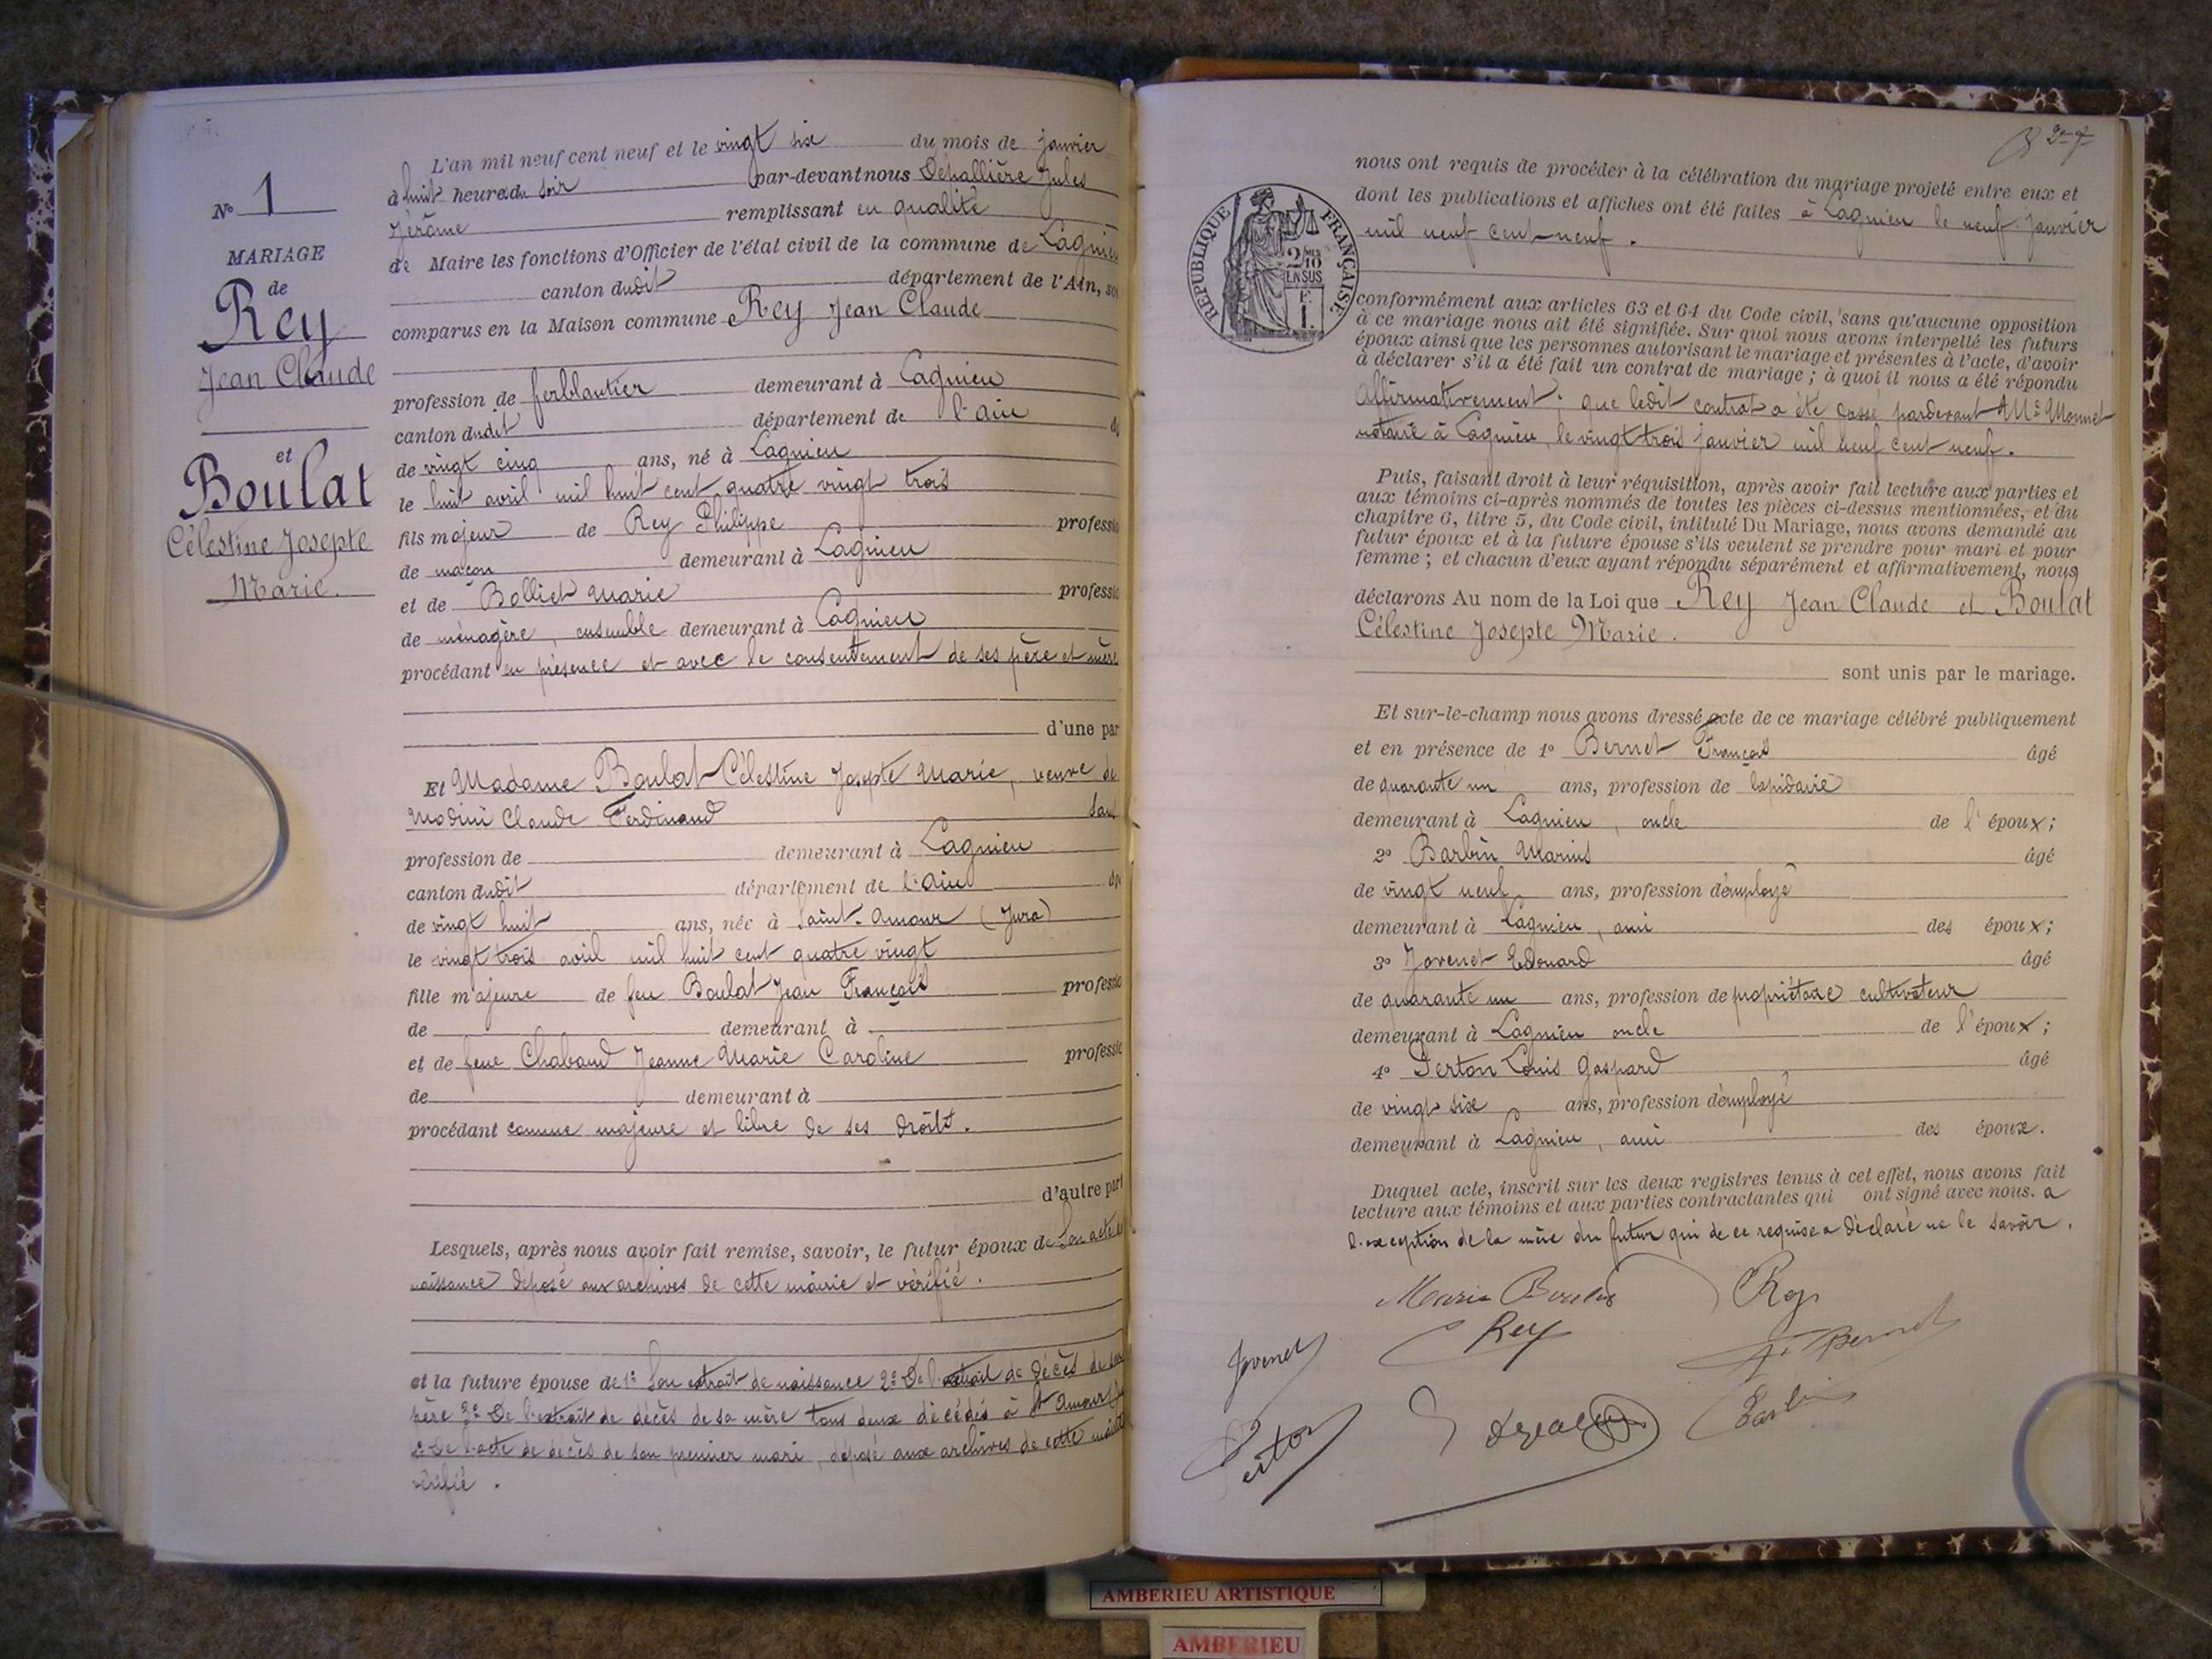 L'an mil neuf cent neuf et le vingt six du mois de janvier
à huit heures du soir par-devant nous Déhallière Jules
Jérôme remplissant en qualité
de Maire les fonctions d'Officier de l'état civil de la commune de Lagnieu
canton dudit département de l'Ain, son
comparus en la Maison commune Rey Jean Claude
profession de ferblantier demeurant à Lagnieu
canton dudit département de l'ain
de vingt cinq ans, né à Lagnieu
le huit avril mil huit cent quatre vingt trois
fils majeur de Rey Philippe professio
de maçon demeurant à Lagnieu
et de Bolliet Marie professio
de ménagère, ensemble demeurant à Lagnieu
procédant en présence et avec le consentement de ses père et mère
d'une par
Et Madame Boulat Célestine Josepte Marie, veuve de
Modini Claude Ferdinand San
profession de demeurant à Lagnieu
canton dudit département de l'ain
de vingt huit ans, née à Saint-Amour (Jura)
le vingt trois avril mil huit cent quatre vingt
fille majeure de feu Boulat Jean François professio
de demeurant à
et de feue Chaband Jeanne Marie Caroline professio
de demeurant à
procédant comme majeure et libre de ses droits.
d'autre part
Lesquels, après nous avoir fait remise, savoir, le futur époux de Son acte de
naissance déposé aux archives de cette mairie et vérifié.
et la future épouse de 1º Son extrait de naissance 2º De l'extrait de décès de son
père 3º De l'extrait de décès de sa mère tous deux décédés à St Amour
De l'acte de décès de son premier mari, déposé aux archives de cette mairie
vérifié.
Nº 1
MARIAGE
de
Rey
Jean Claude
et
Boulat
Célestine Josepte
Marie.
RÉPUBLIQUE FRANÇAISE
2/10
EN SUS
F.
1.
nous ont requis de procéder à la célébration du mariage projeté entre eux et
dont les publications et affiches ont été faites à Lagnieu le neuf Janvier
mil neuf cent-neuf.
conformément aux articles 63 et 64 du Code civil, sans qu'aucune opposition
à ce mariage nous ait été signifiée. Sur quoi nous avons interpellé les futurs
époux ainsi que les personnes autorisant le mariage et présentes à l'acte, d'avoir
à déclarer s'il a été fait un contrat de mariage ; à quoi il nous a été répondu
Affirmativement ; que ledit contrat a été passé pardevant Me Monnet
notaire à Lagnieu, le vingt trois janvier mil neuf cent neuf.
Puis, faisant droit à leur réquisition, après avoir fait lecture aux parties et
aux témoins ci-après nommés de toutes les pièces ci-dessus mentionnées, et du
chapitre 6, titre 5, du Code civil, intitulé Du Mariage, nous avons demandé au
futur époux et à la future épouse s'ils veulent se prendre pour mari et pour
femme ; et chacun d'eux ayant répondu séparément et affirmativement, nous
déclarons Au nom de la Loi que Rey Jean Claude et Boulat
Célestine Josepte Marie.
sont unis par le mariage.
Et sur-le-champ nous avons dressé acte de ce mariage célébré publiquement
et en présence de 1º Bernet François âgé
de quarante un ans, profession de lapidaire
demeurant à Lagnieu, oncle de l'époux ;
2º Barbin Marius âgé
de vingt neuf ans, profession d'employé
demeurant à Lagnieu, ami des époux ;
3º Jovenet Edouard âgé
de quarante un ans, profession de propriétaire cultivateur
demeurant à Lagnieu oncle de l'époux ;
4º Perton Louis Gaspard âgé
de vingt six ans, profession d'employé
demeurant à Lagnieu, ami des époux.
Duquel acte, inscrit sur les deux registres tenus à cet effet, nous avons fait
lecture aux témoins et aux parties contractantes qui ont signé avec nous. a
l'exception de la mère du futur qui de ce requise a déclaré ne le savoir.
Marie Boulat Rey
Jovenet Rey F. Bernet
Perton Barbin
AMBERIEU ARTISTIQUE
AMBERIEU